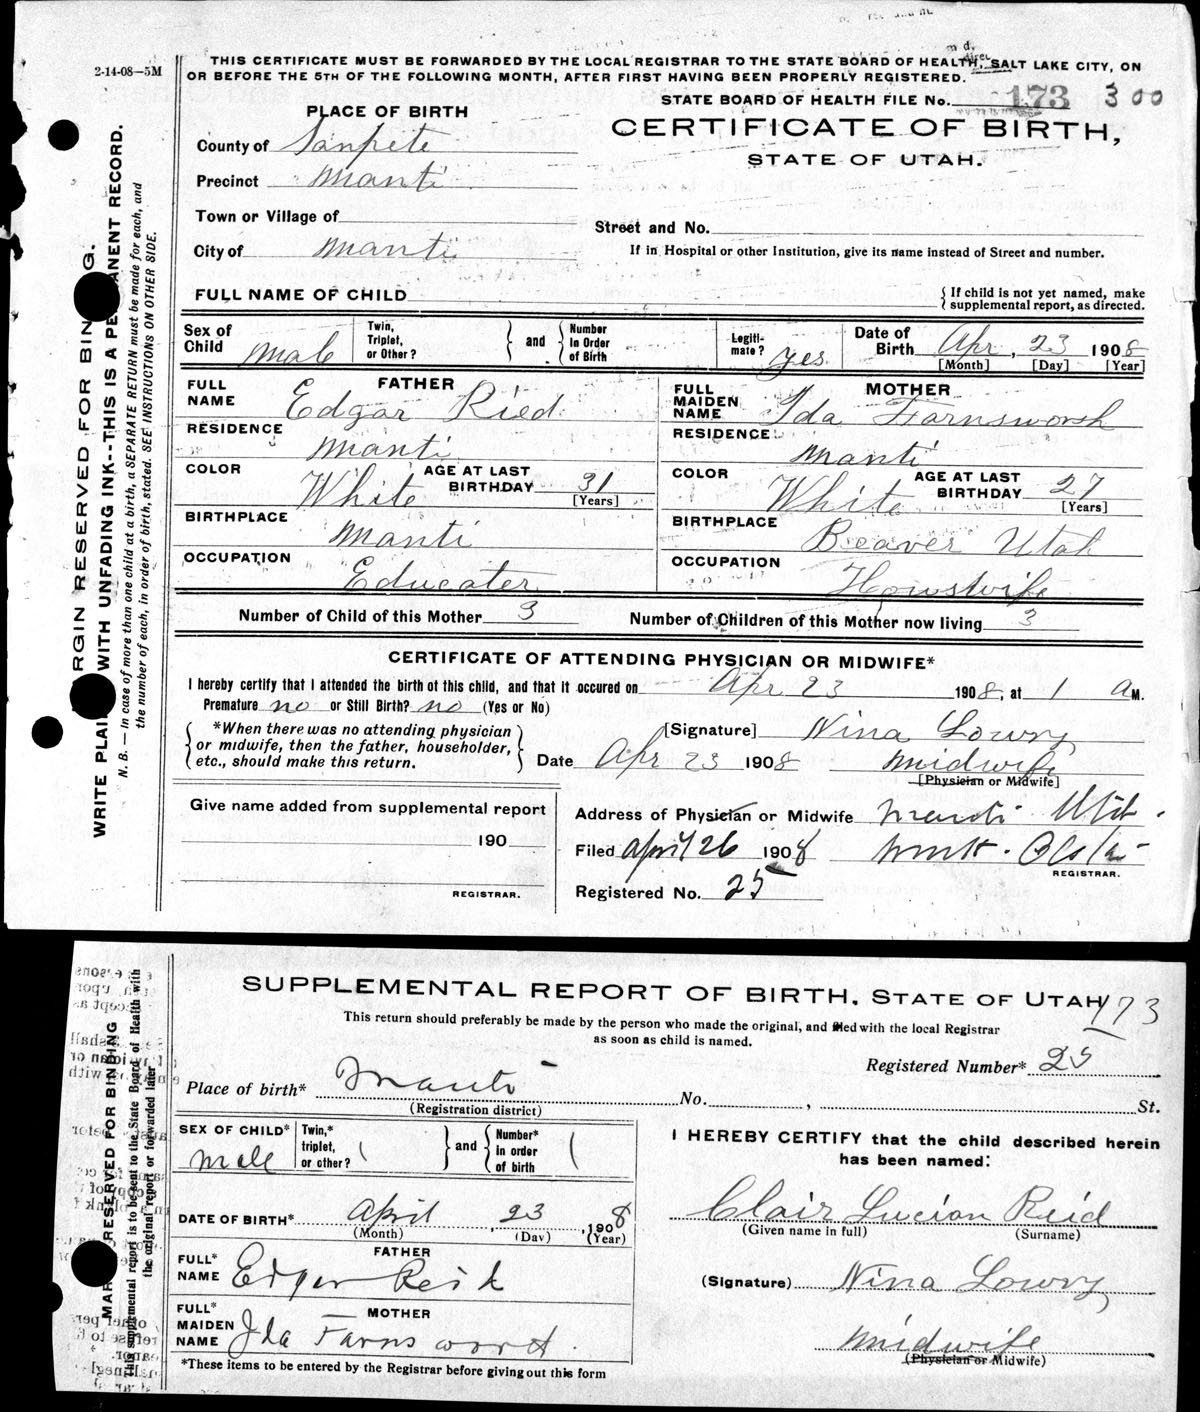 2-14-08—5M
THIS CERTIFICATE MUST BE FORWARDED BY THE LOCAL REGISTRAR TO THE STATE BOARD OF HEALTH, SALT LAKE CITY, ON
OR BEFORE THE 5TH OF THE FOLLOWING MONTH, AFTER FIRST HAVING BEEN PROPERLY REGISTERED.
STATE BOARD OF HEALTH FILE No. 173 300
CERTIFICATE OF BIRTH,
STATE OF UTAH.
PLACE OF BIRTH
County of Sanpete
Precinct Manti
Town or Village of
City of Manti
Street and No.
If in Hospital or other Institution, give its name instead of Street and number.
FULL NAME OF CHILD
{ If child is not yet named, make
supplemental report, as directed.
Sex of Child Male
Twin, Triplet, or Other?
and
Number in Order of Birth
Legitimate? yes
Date of Birth Apr, 23 1908
[Month] [Day] [Year]
FATHER
FULL NAME Edgar Ried
RESIDENCE Manti
COLOR White
AGE AT LAST BIRTHDAY 31
[Years]
BIRTHPLACE Manti
OCCUPATION Educater
MOTHER
FULL MAIDEN NAME Ida Farnsworth
RESIDENCE Manti
COLOR White
AGE AT LAST BIRTHDAY 27
[Years]
BIRTHPLACE Beaver Utah
OCCUPATION Howswife
Number of Child of this Mother 3
Number of Children of this Mother now living 3
CERTIFICATE OF ATTENDING PHYSICIAN OR MIDWIFE*
I hereby certify that I attended the birth of this child, and that it occured on Apr 23 1908, at 1 A M.
Premature no or Still Birth? no (Yes or No)
*When there was no attending physician
or midwife, then the father, householder,
etc., should make this return.
[Signature] Nina Lowry
Date Apr 23 1908 Midwife
[Physician or Midwife]
Give name added from supplemental report
190
REGISTRAR.
Address of Physician or Midwife Manti Utah.
Filed April 26 1908
REGISTRAR.
Registered No. 25
MARGIN RESERVED FOR BINDING.
WRITE PLAINLY WITH UNFADING INK--THIS IS A PERMANENT RECORD.
N. B. — In case of more than one child at a birth, a SEPARATE RETURN must be made for each, and
the number of each, in order of birth, stated. SEE INSTRUCTIONS ON OTHER SIDE.
SUPPLEMENTAL REPORT OF BIRTH, STATE OF UTAH 173
This return should preferably be made by the person who made the original, and filed with the local Registrar
as soon as child is named.
Registered Number* 25
Place of birth* Manti No. , St.
(Registration district)
SEX OF CHILD* Male
Twin,* triplet, or other?
and
Number* in order of birth
DATE OF BIRTH* April, 23, 1908
(Month) (Day) (Year)
FATHER
FULL* NAME Edgar Reid
MOTHER
FULL* MAIDEN NAME Ida Farnsworth
*These items to be entered by the Registrar before giving out this form
I HEREBY CERTIFY that the child described herein
has been named:
Clair Lucian Reid
(Given name in full) (Surname)
(Signature) Nina Lowry
Midwife
(Physician or Midwife)
MARGIN RESERVED FOR BINDING
This supplemental report is to be sent to the State Board of Health with
the original report or forwarded later